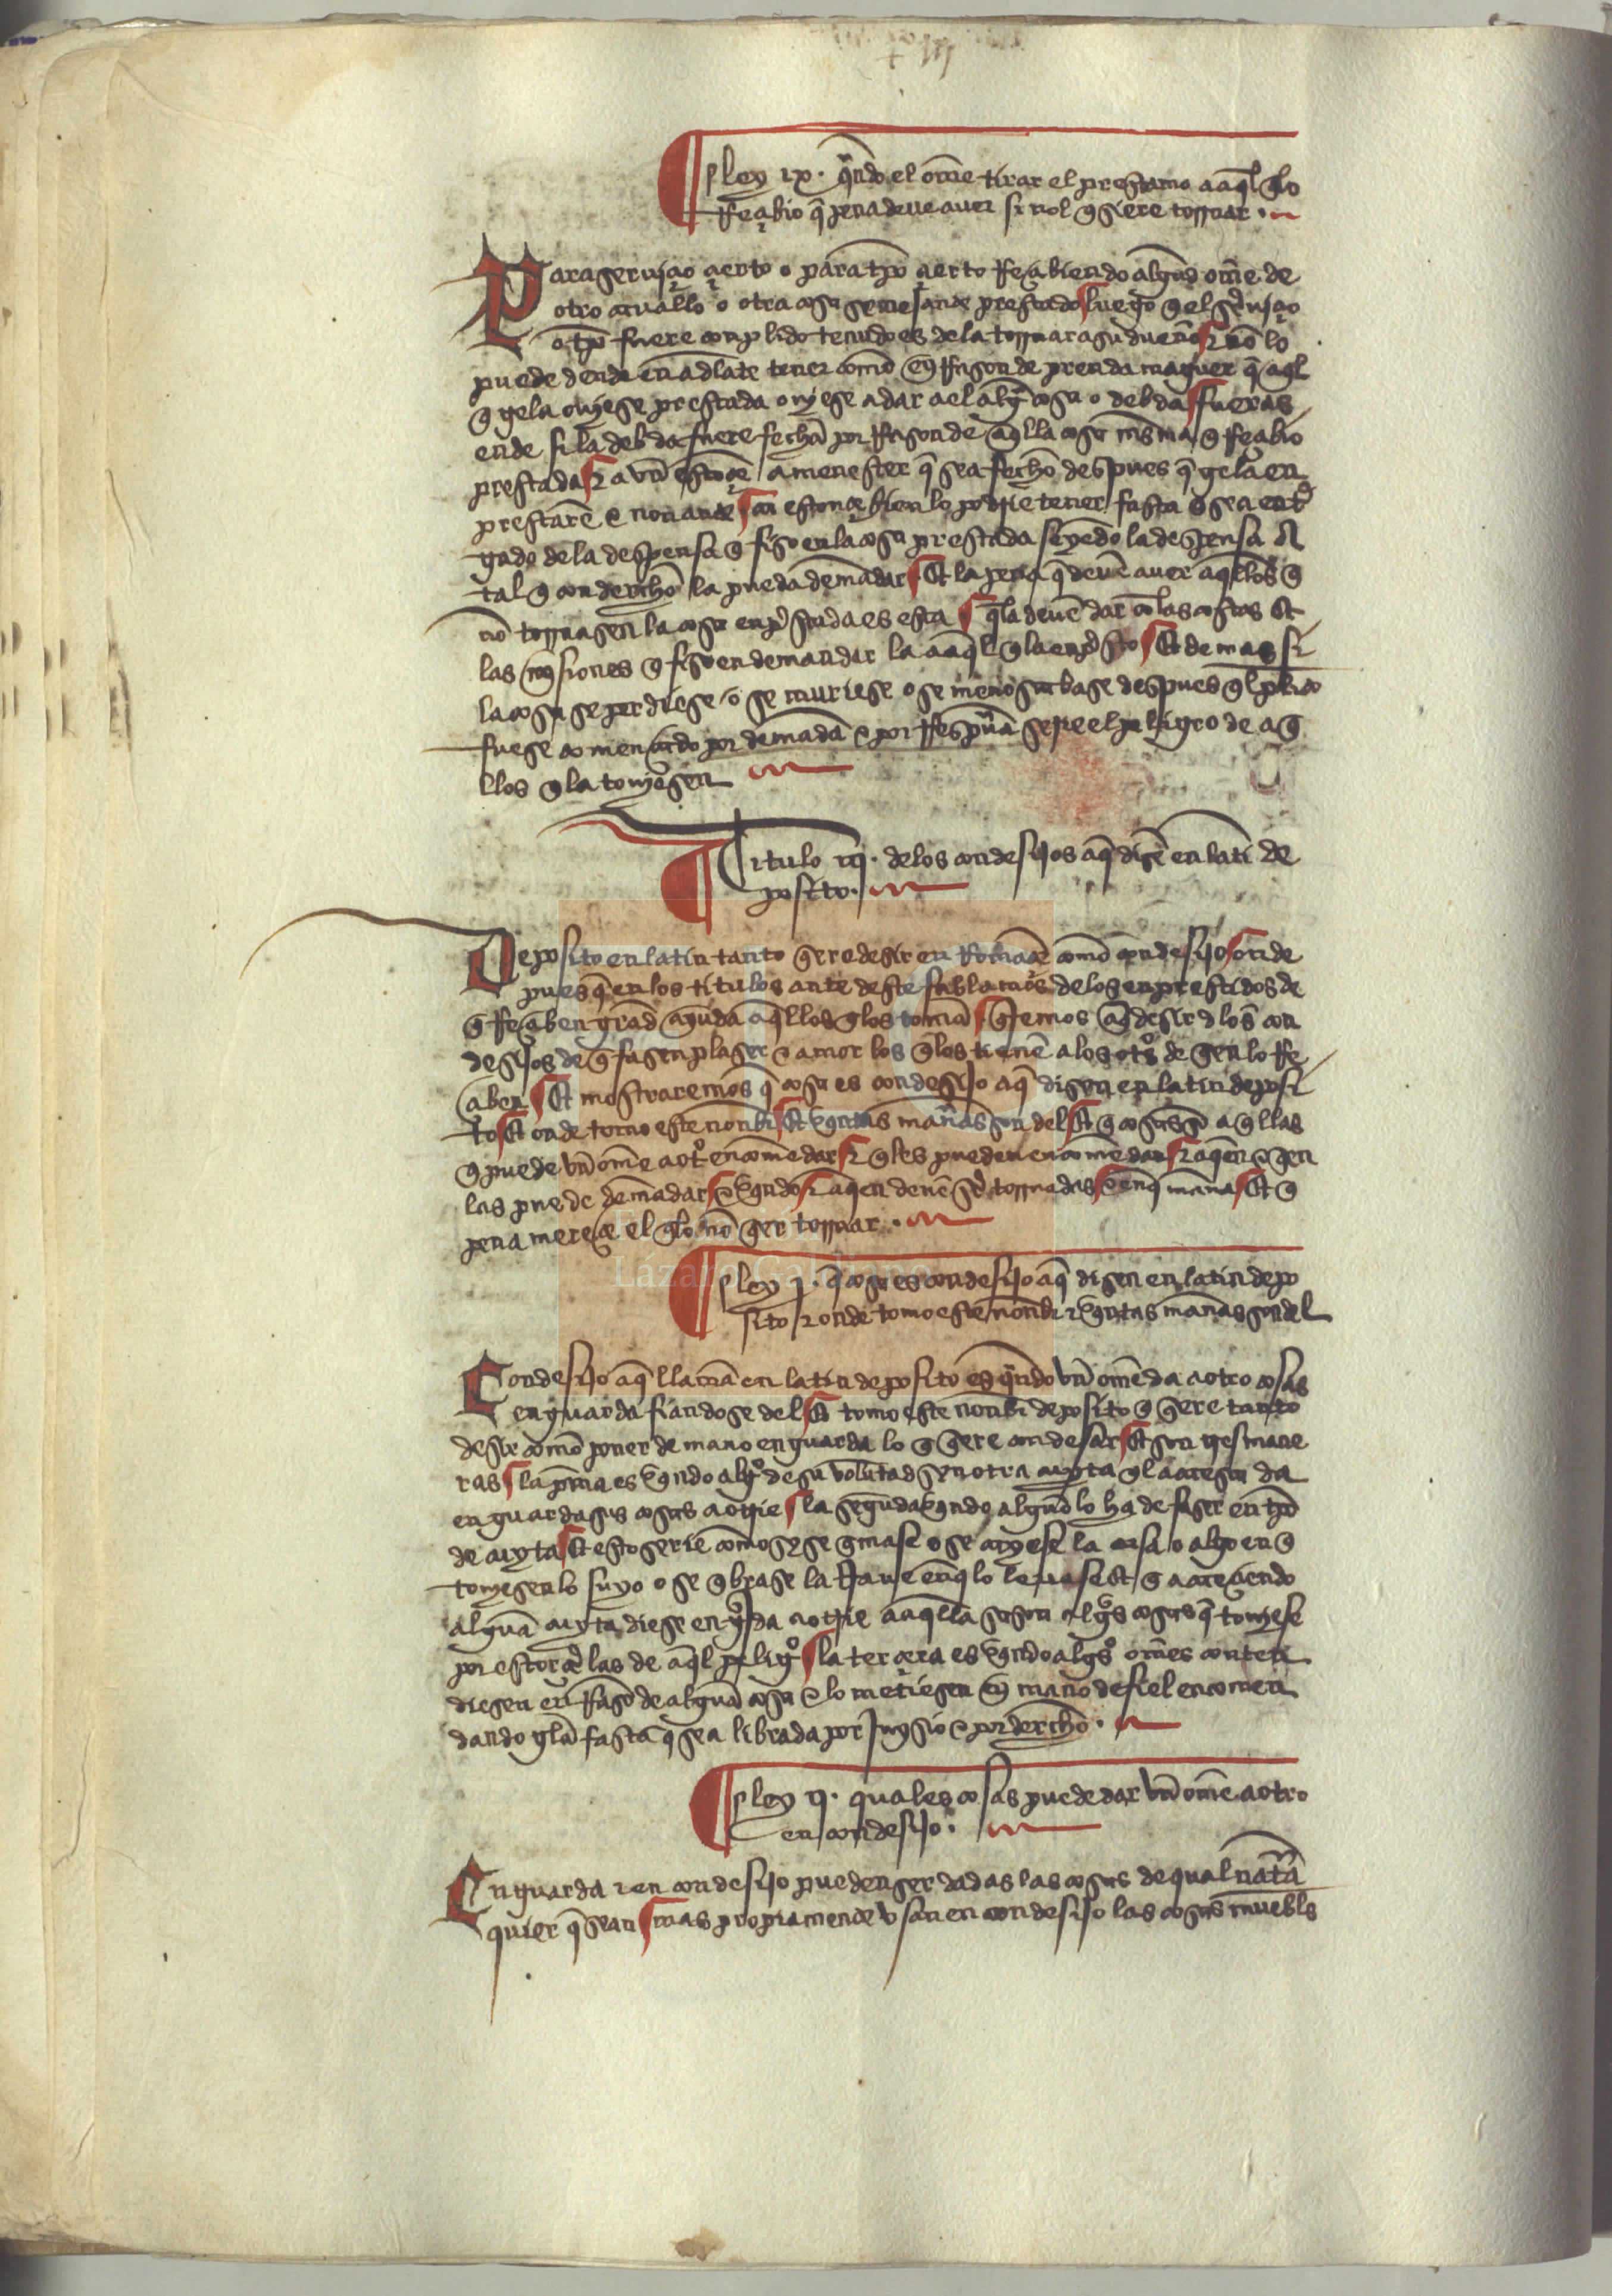 ley ix. qñdo el om̃e tirar el prestamo a aq̃l q̃ lo
rresçibio q̃ pena deue auer si nol q̃siere tornar.
Para seruiçio çierto o para tp̃o çierto rresçibiendo algũs om̃e de
otro cauallo o otra cosa semejante prestado luego q̃ el seruiçio
o tp̃o fuere conplido tenudo es de la tornar a su dueño ⁊ nõ lo
puede dende en adlãte tener como en rrason de prenda maguer q̃ aq̃l
q̃ gela ouiese prestada ouiese a dar a el algũa cosa o debda fueras
ende si la debda fuere fecha por rrason de aq̃lla cosa misma q̃ rresçibio
prestada ⁊ avn estonçe a menester q̃ sea fecho despues q̃ gela en
prestarẽ ⁊ non ante ca estonçe bien lo podrie tener fasta q̃ sea ent̃
gado de la despensa q̃ fiso en la cosa prestada seyẽdo la despensa a
tal q̃ con derecho la pueda demãdar Et la pena q̃ deuẽ auer aq̃llos q̃
nõ tornasen la cosa enp̃stada es esta q̃ la deuẽ dar cõ las costas Et
las misiones q̃ fiso en demandar la a aq̃l q̃ la enp̃sto Et demas si
la cosa se perdiese o se muriese o se menoscabase despues q̃l pleito
fuese començado por demãda ⁊ por rrespuesta serie el peligro de aq̃
llos q̃ la touiesen
Titulo iij. de los condesijos a q̃ disẽ en latĩ de
posito.
Deposito en latin tanto q̃ere desir en rromãçe como condesijo onde
pues q̃ en los titulos ante deste fablamos de los enprestidos de
q̃ rresçiben grãd ayuda aq̃llos q̃ los tomã q̃remos aq̃ desir d los con
desijos de q̃ fasen plaser ⁊ amor los q̃ los tienẽ a los ot̃s de q̃en lo rre
çiben Et mostraremos q̃ cosa es condesijo a q̃ disen en latin deposi
to Et onde tomo este nonbr̃ Et quantas mañas son del Et q̃ cosas sõ aq̃llas
q̃ puede vñ om̃e a ot̃ encomẽdar ⁊ q̃les pueden encomẽdar ⁊ a q̃en ⁊ q̃en
las puede demãdar ⁊ quãdo ⁊ a q̃en deuẽ ser tornadas ⁊ en q̃ mañra Et q̃
pena mereçe el q̃ lo nõ q̃er tornar.
ley j. q̃ cosa es condesijo a q̃ disen en latin depo
sito ⁊ onde tomo este nonbr̃ ⁊ quantas mañas son del
Condesijo a q̃ llamã en latin deposito es qñdo vñ om̃e da a otro cosas
en guarda fiandose del Et tomo este nonbr̃ deposito q̃ q̃ere tanto
desir como poner de mano en guarda lo q̃ q̃ere condesar Et son tres mane
ras la prim̃a es quãdo algũo de su voluntad syn otra cuyta q̃ la acresca da
en guarda sus cosas a otrie la segũda quãdo alguno lo ha de faser en tp̃o
de cuyta Et esto serie como sy se q̃mase o se cayese la casa o algo en q̃
touiesen lo suyo o se q̃brase la naue en q̃ lo leuase Et q̃ acaesçiendo
algunã cuyta diese en guarda a otrie a aq̃lla sason algũas cosas q̃ touiese
por estorçer las de aq̃l peligro la terçera es quãdo algũos om̃es conten
diesen en rrasõ de algunã cosa ⁊ lo metiesen en mano de fiel encomen
dando gela fasta q̃ sea librada por juysio ⁊ por derecho.
ley ij. quales cosas puede dar vñ om̃e a otro
en condesijo.
En guarda ⁊ en condesijo pueden ser dadas las cosas de qual natũa
quier q̃ sean mas propiamente vsan en condesijo las cosas muebles